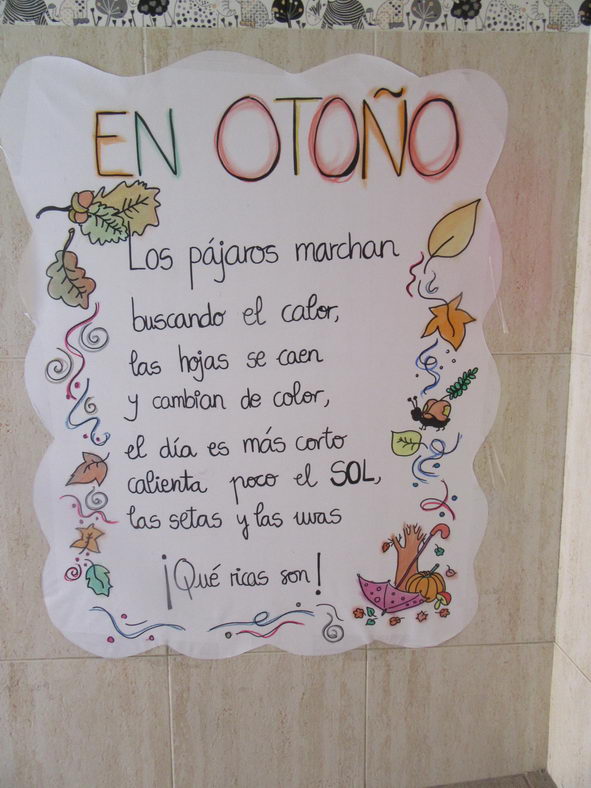 EN OTOÑO
Los pájaros marchan
buscando el calor,
las hojas se caen
y cambian de color,
el día es más corto
calienta poco el SOL,
las setas y las uvas
¡Qué ricas son!